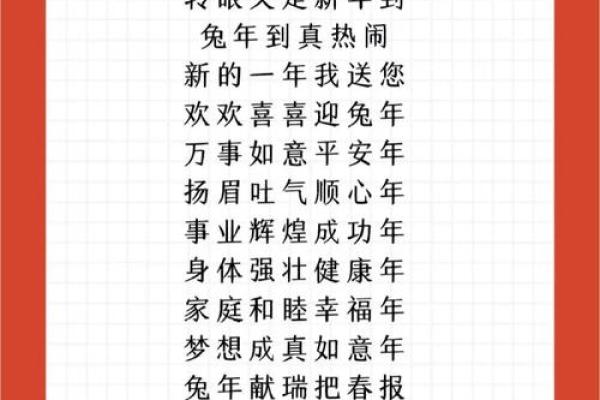 转眼又是新年到
兔年到真热闹
新的一年我送您
欢欢喜喜迎兔年
万事如意平安年
扬眉吐气顺心年
事业辉煌成功年
身体强壮健康年
家庭和睦幸福年
梦想成真如意年
兔年献瑞把春报